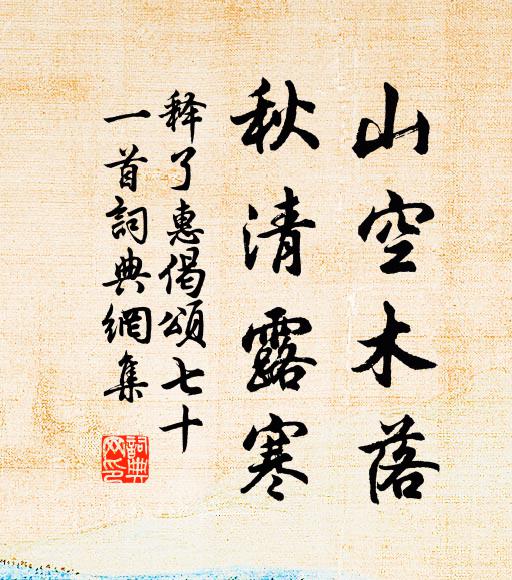 山空木落
秋清露寒
释了惠偈頌七十
一首詞典網集